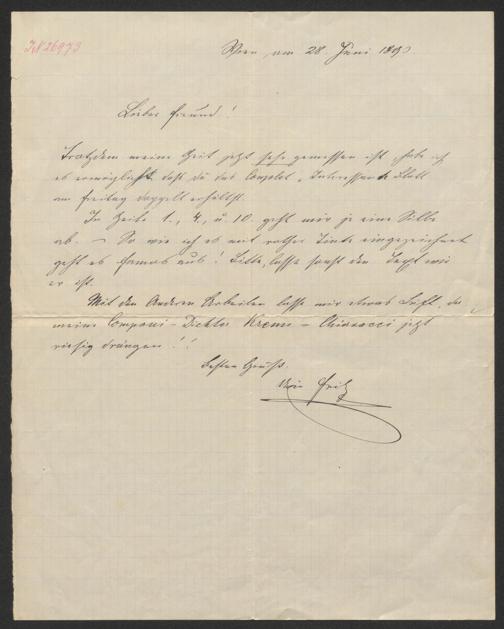 IN 26973
Wien, am 28. Juni 1890.
Lieber Freund!
Trotzdem meine Zeit jetzt sehr gemessen ist, habe ich
es ermöglicht, daß du das Couplet „Interessante Blatt
am Freitag doppelt erhältst.
In Zeile 1., 4., u. 10. geht mir je eine Silbe
ab. – So wie ich es mit rother Tinte eingezeichnet
geht es famos aus! Bitte, lasse sonst den Text wie
er ist.
Mit den Anderen Arbeiten lasse mir etwas Luft, da
meine Componi- Krenn - Chiavacci jetzt
riesig drängen!!
Besten Gruß.
Dein Fritz